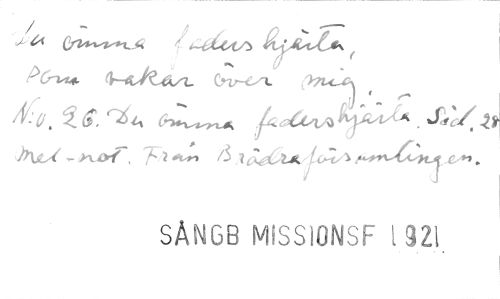 Du ömma fadershjärta,
som vakar över mig,
N:o. 26. Du ömma fadershjärta. Sid. 28
mel-not. Från Brödraförsamlingen.
SÅNGB MISSIONSF 1921